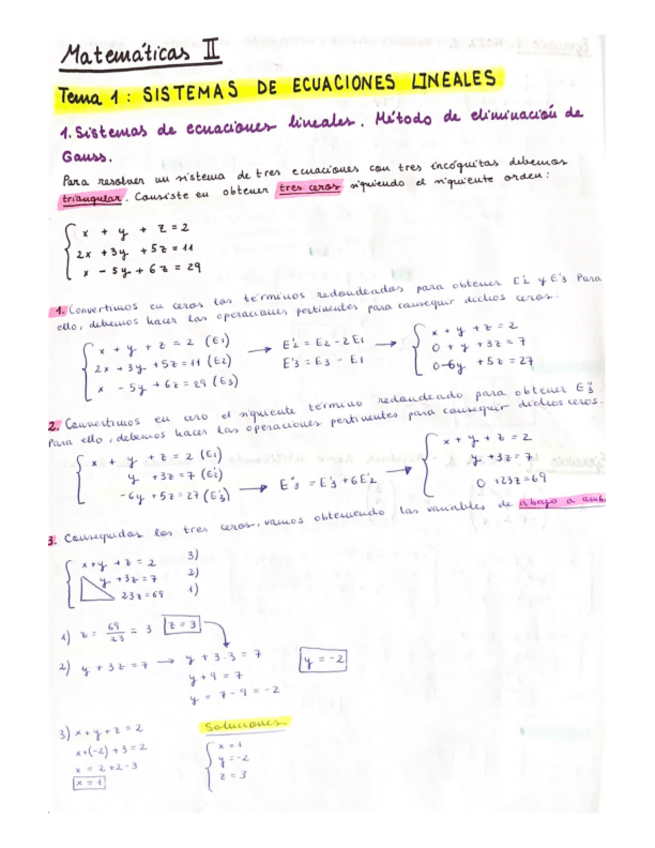 Matemáticas II
Tema 1: SISTEMAS DE ECUACIONES LINEALES
1. Sistemas de ecuaciones lineales. Método de eliminación de
Gauss.
Para resolver un sistema de tres ecuaciones con tres incógnitas debemos
triangular. Consiste en obtener tres ceros siguiendo el siguiente orden:
x + y + z = 2
2x + 3y + 5z = 11
x - 5y + 6z = 29
1. Convertimos en ceros los términos redondeados para obtener E'2 y E'3 Para
ello, debemos hacer las operaciones pertinentes para conseguir dichos ceros:
x + y + z = 2 (E1)
2x + 3y + 5z = 11 (E2)
x - 5y + 6z = 29 (E3)
→ E'2 = E2 - 2E1
E'3 = E3 - E1
→ x + y + z = 2
0 + y + 3z = 7
0 - 6y + 5z = 27
2. Convertimos en cero el siguiente término redondeado para obtener E''3
Para ello, debemos hacer las operaciones pertinentes para conseguir dichos ceros.
x + y + z = 2 (E1)
y + 3z = 7 (E'2)
-6y + 5z = 27 (E'3) → E''3 = E'3 + 6E'2 →
x + y + z = 2
y + 3z = 7
0 + 23z = 69
3. Conseguidos los tres ceros, vamos obteniendo las variables de abajo a
x + y + z = 2 3)
y + 3z = 7 2)
23z = 69 1)
1) z = 69/23 = 3 z = 3
2) y + 3z = 7 → y + 3·3 = 7 y = -2
y + 9 = 7
y = 7 - 9 = -2
3) x + y + z = 2
x + (-2) + 3 = 2
x = 2 + 2 - 3
x = 1
Soluciones
x = 1
y = -2
z = 3